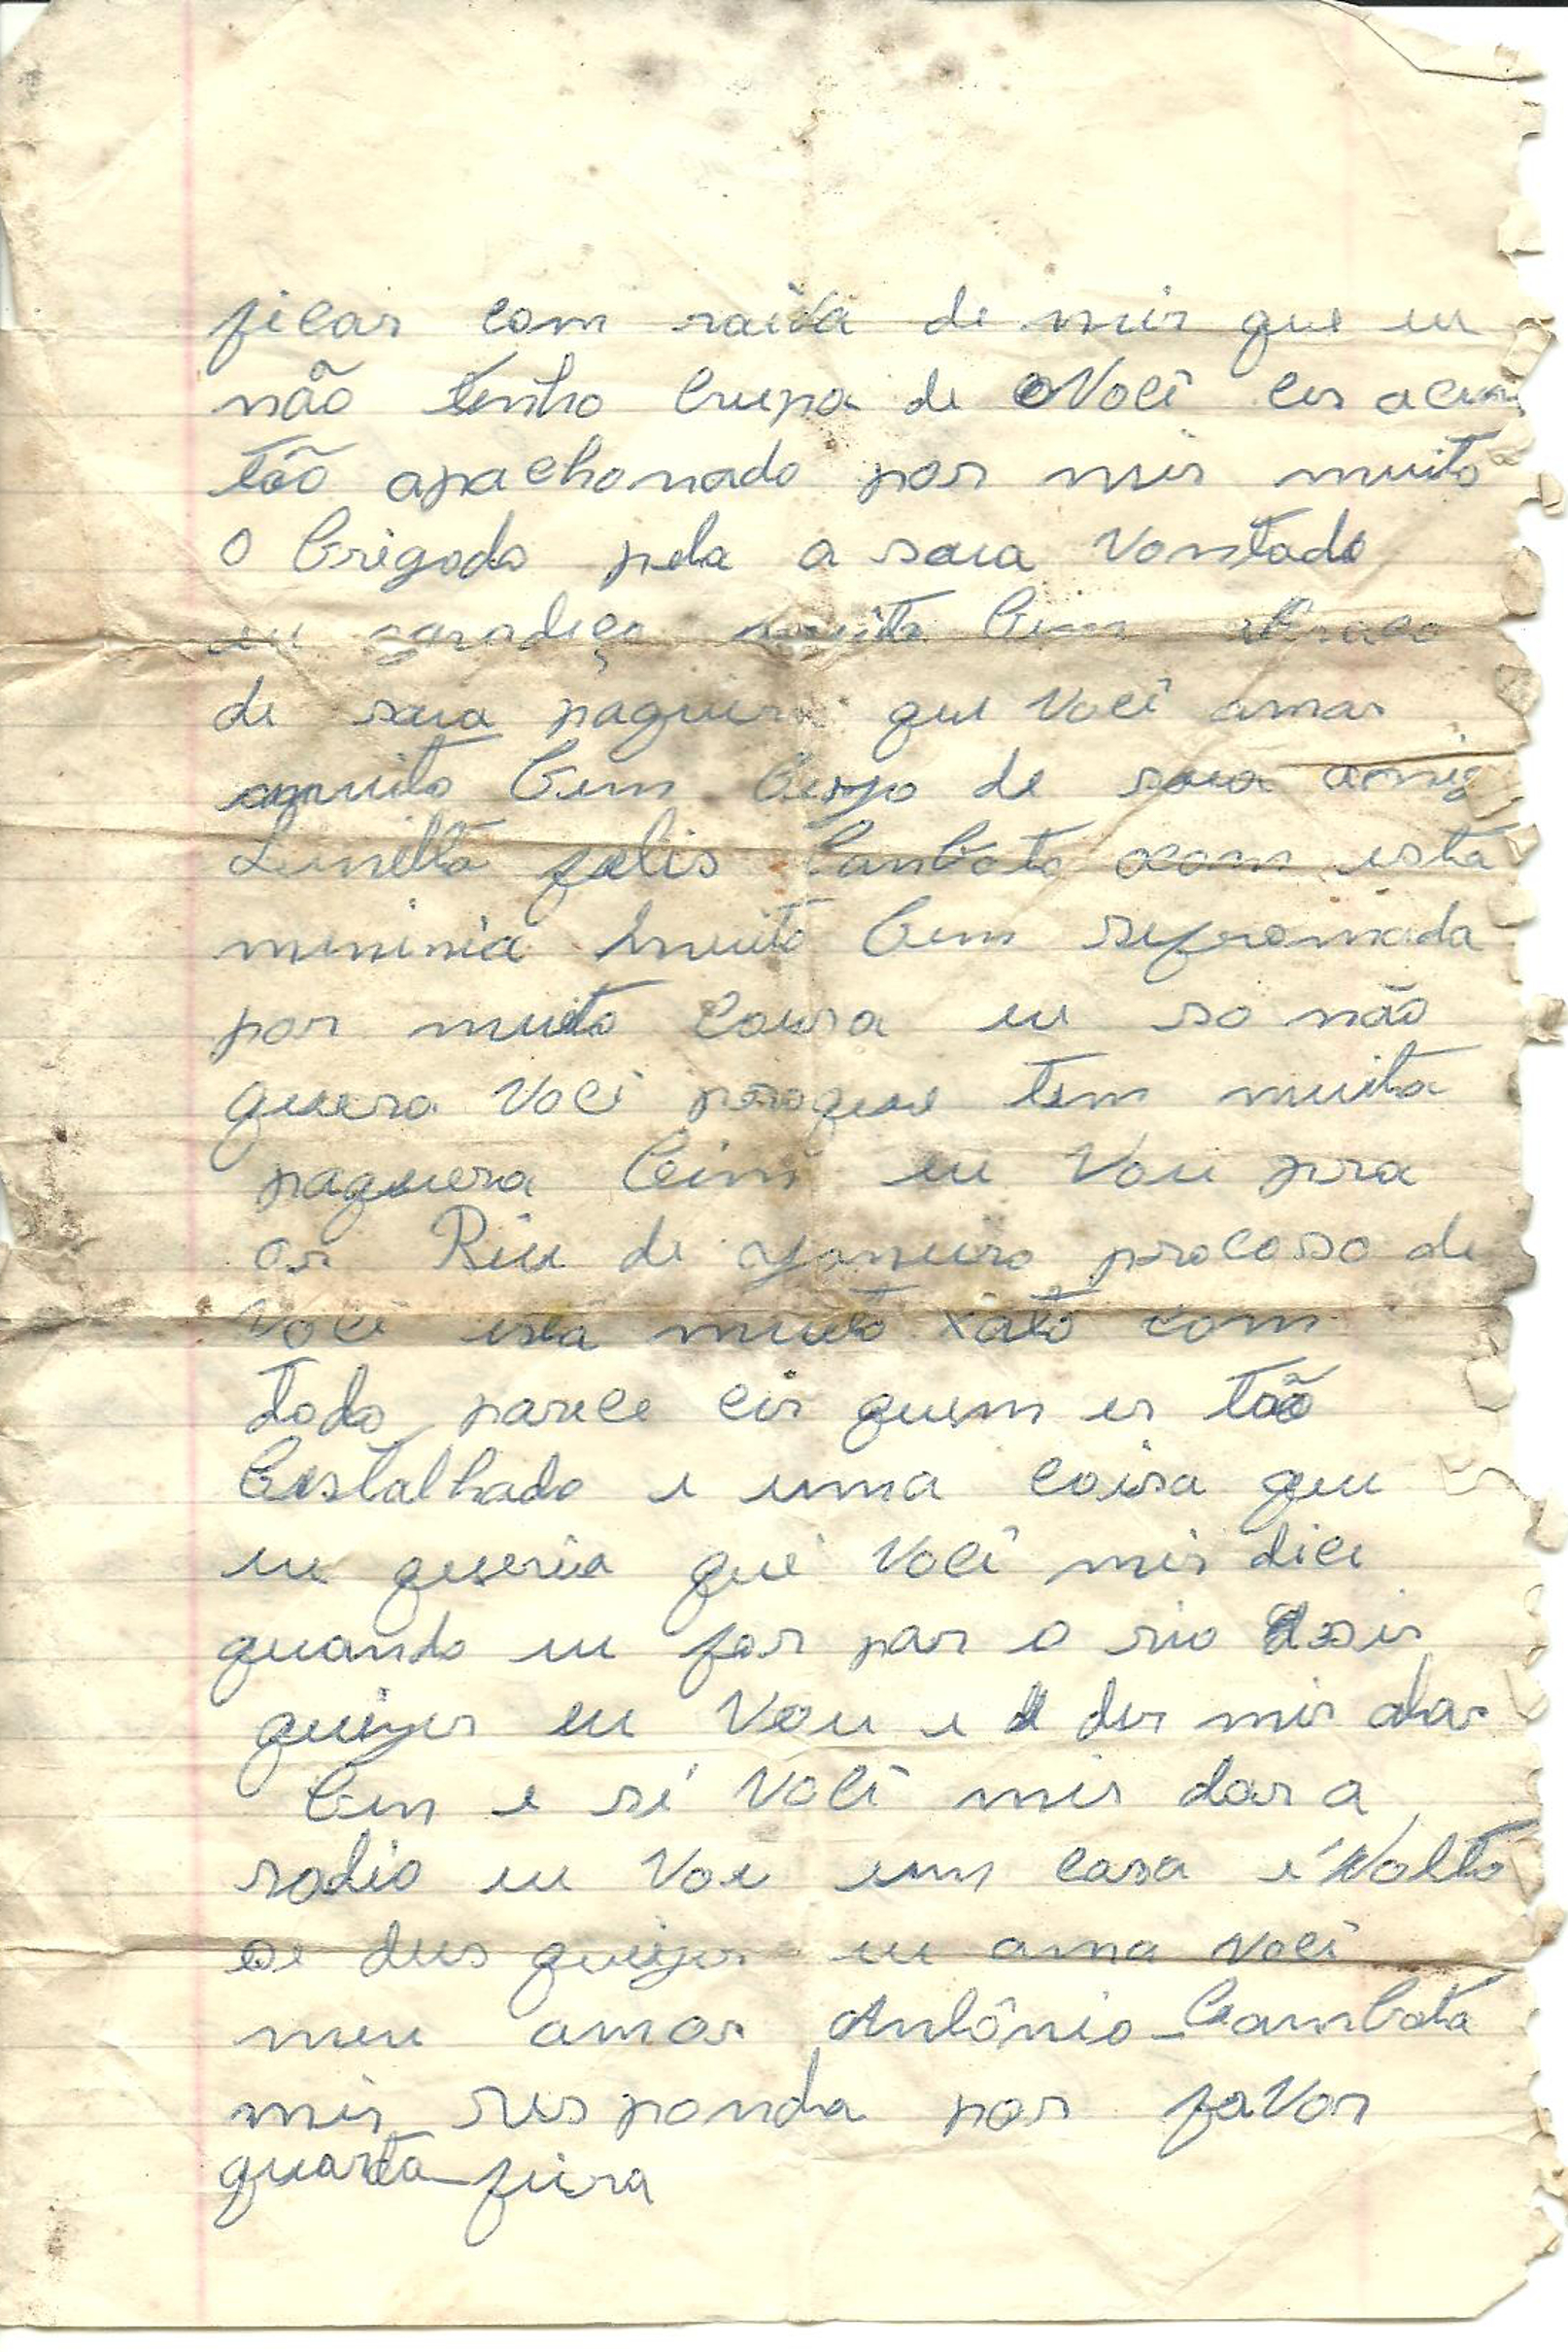 ficar com raiva de mir que eu
não tenho Crupa de Você cer acun
tão apachonado por mir muito
o brigado pela a saua Vontade
eu agradeço muito bem abraço
de saua paquera que Você amar
muito bem beyjo de saua amig
Lunelta felis Canbota com esta
mininia muito bem reformada
por muita cousa eu so não
quero Você poroque tem muita
paquera bein eu Vou pra
or Riu de yaneiro procoso de
Você esta muito xato com
todo parece cir quem er tão
bestalhado e uma coisa que
eu queria que Você mir dice
quando eu for par o rio
quizer eu Vou e der mir dar
bem e si Você mir dar a
radio eu Voe em casa e Volto
se deus quizer eu ama Você
meu amor Antônio - Cambota
mir responda por faVor
quarta-feira